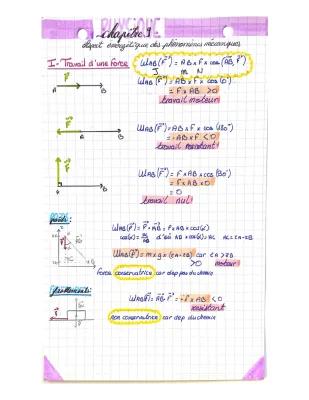 PHYSIQUE
chapitre 1
aspect énergétique des phénomènes mécaniques
I- Travail d'une force
W_AB(F⃗) = AB x F x cos(AB⃗, F⃗)
J m N
W_AB(F⃗) = AB x F x cos(0)
= F x AB > 0
travail moteur
F⃗
A B
W_AB(F⃗) = AB x F x cos(180°)
= -AB x F < 0
travail résistant
F⃗
A B
W_AB(F⃗) = F x AB x cos(90°)
= F x AB x 0
= 0
travail nul
F⃗
A B
poids:
W_AB(P⃗) = P⃗ · AB⃗ = P x AB x cos(α)
cos(α) = AC/AB d'où AB x cos(α) = AC AC = zA - zB
W_AB(P⃗) = m x g x (zA - zB) car zA > zB
> 0 moteur
Force conservatrice car dep pas du chemin
frottements:
W_AB(f⃗) = AB⃗ · f⃗ = -f x AB < 0
résistant
non conservatrice car dep du chemin